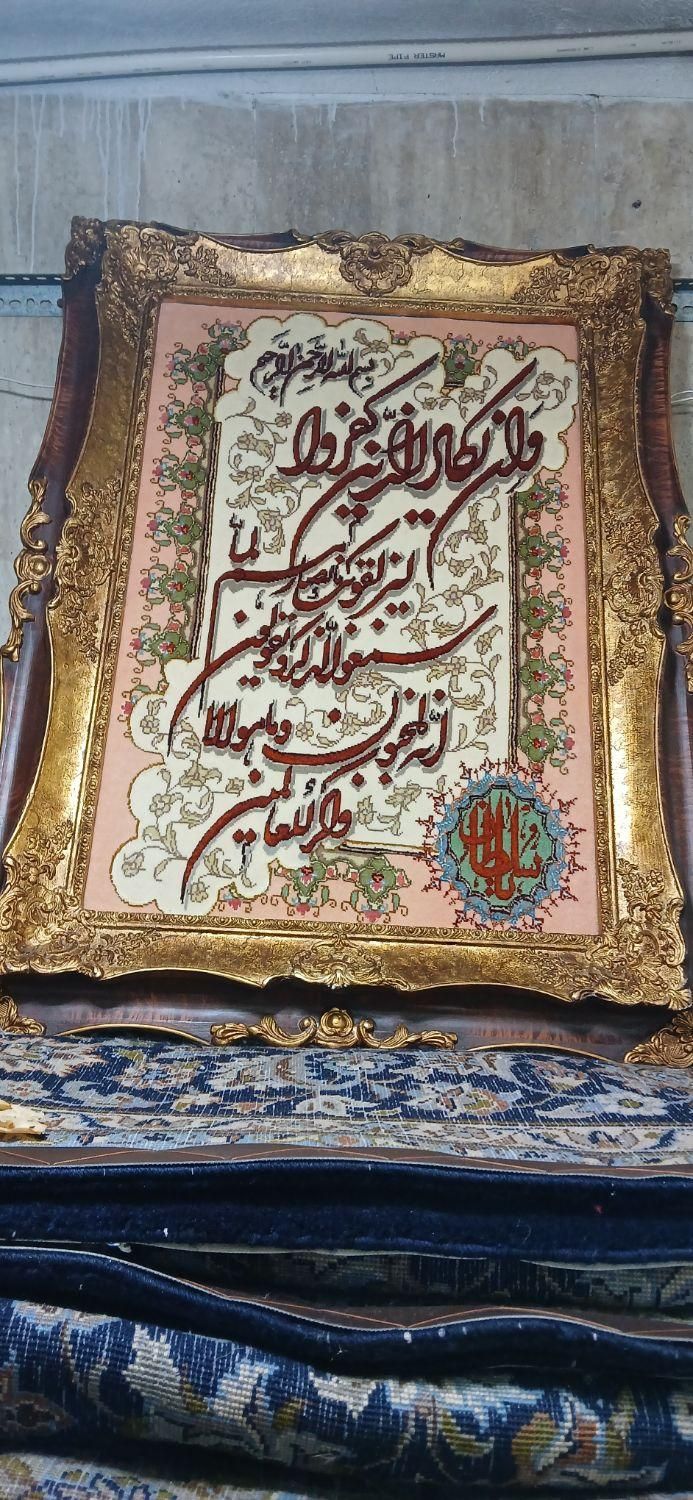 MASTER PIPE
بسم الله الرحمن الرحیم
وان یکاد الذین کفروا
لیزلقونک بابصارهم لما
سمعوا الذکر و یقولون
انه لمجنون وما هو الا
ذکر للعالمین